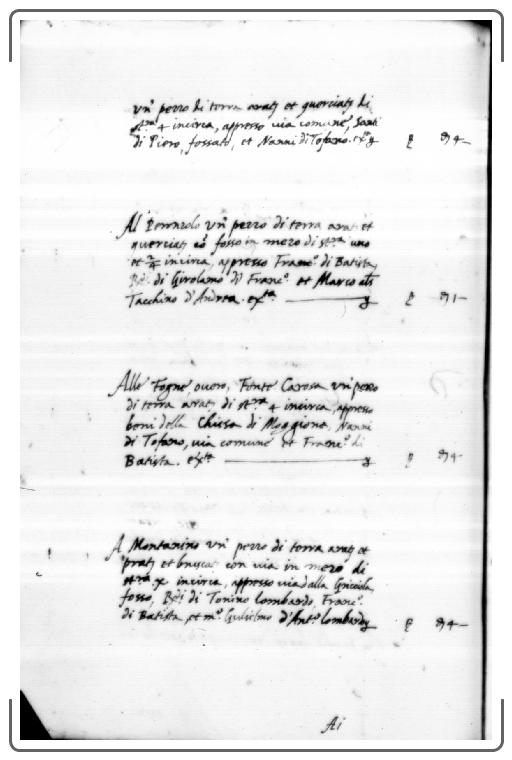 un' pezzo di terra arat; et querciat; di
st.ra 4 incirca, appresso via comune, Santi
di Piero, fossato, et Nanni di Tofano. ex.ta
un' pezzo di terra arat; et
querciat; cō fosso in mezo di st.ra uno
et incirca, appresso Franc.o di Batista,
di Girolamo di Franc.o et Marco als
Tacchino d'Andrea. ext.a
Alle Fogne, overo, Fonte Carosa un' pezzo
di terra arat; di st.ra 4 incirca, appresso
beni della Chiesa di Moggiona, Nanni
di Tofano, via comune et Franc.o di
Batista. ext.a
A Montanino un' pezzo di terra arat; et
prat; et bruscat; con via in mezo di
st.ra incirca, appresso via dalla
fosso, di Tonino lombardo, Franc.o
di Batista, et m.o Gulielmo d'Ant.o lombardo
Ai